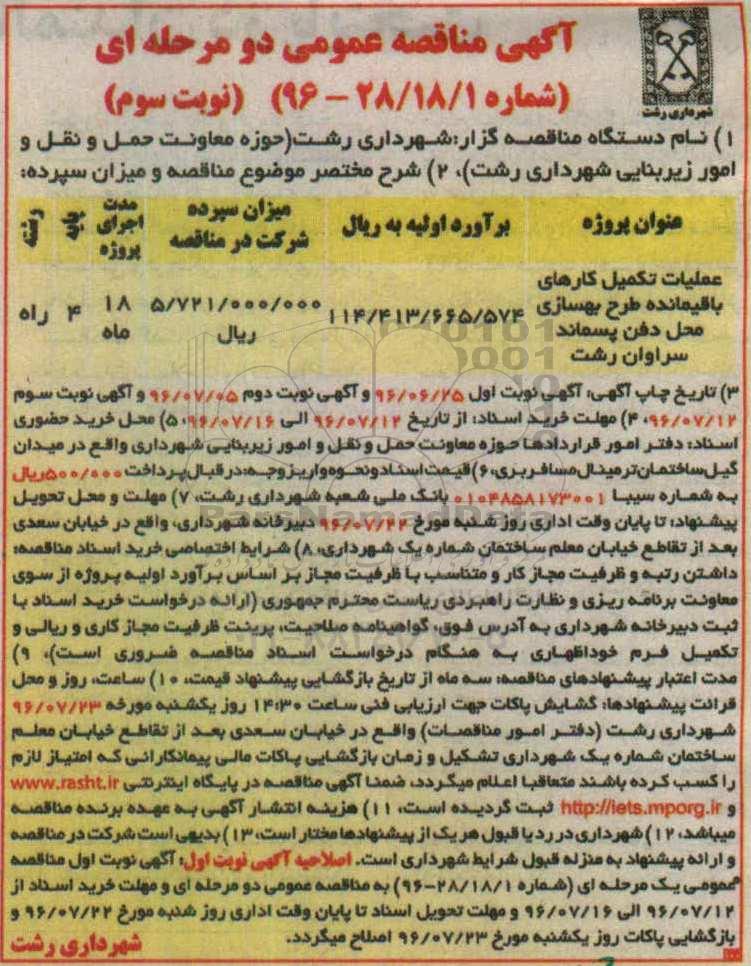 آگهی مناقصه عمومی دو مرحله ای
(شماره ۲۸/۱۸/۱ – ۹۶) (نوبت سوم)
شهرداری رشت
۱) نام دستگاه مناقصه گزار:شهرداری رشت(حوزه معاونت حمل و نقل و
امور زیربنایی شهرداری رشت)، ۲) شرح مختصر موضوع مناقصه و میزان سپرده:
عنوان پروژه
برآورد اولیه به ریال
میزان سپرده شرکت در مناقصه
مدت اجرای پروژه
پایه
رشته
عملیات تکمیل کارهای
باقیمانده طرح بهسازی
محل دفن پسماند
سراوان رشت
۱۱۴/۴۱۳/۶۶۵/۵۷۴
۵/۷۲۱/۰۰۰/۰۰۰
ریال
۱۸
ماه
۴
راه
۳) تاریخ چاپ آگهی: آگهی نوبت اول ۹۶/۰۶/۲۵ و آگهی نوبت دوم ۹۶/۰۷/۰۵ و آگهی نوبت سوم
۹۶/۰۷/۱۲، ۴) مهلت خرید اسناد: از تاریخ ۹۶/۰۷/۱۲ الی ۹۶/۰۷/۱۶، ۵) محل خرید حضوری
اسناد: دفتر امور قراردادها حوزه معاونت حمل و نقل و امور زیربنایی شهرداری واقع در میدان
گیل ساختمان ترمینال مسافربری، ۶) قیمت اسناد و نحوه واریز وجه: در قبال پرداخت ۵۰۰/۰۰۰ ریال
به شماره سیبا ۰۱۰۴۸۵۸۱۷۳۰۰۱ بانک ملی شعبه شهرداری رشت، ۷) مهلت و محل تحویل
پیشنهاد: تا پایان وقت اداری روز شنبه مورخ ۹۶/۰۷/۲۲ دبیرخانه شهرداری، واقع در خیابان سعدی
بعد از تقاطع خیابان معلم ساختمان شماره یک شهرداری، ۸) شرایط اختصاصی خرید اسناد مناقصه:
داشتن رتبه و ظرفیت مجاز کار و متناسب با ظرفیت مجاز بر اساس برآورد اولیه پروژه از سوی
معاونت برنامه ریزی و نظارت راهبردی ریاست محترم جمهوری (ارائه درخواست خرید اسناد با
ثبت دبیرخانه شهرداری به آدرس فوق، گواهینامه صلاحیت، پرینت ظرفیت مجاز کاری و ریالی و
تکمیل فرم خوداظهاری به هنگام درخواست اسناد مناقصه ضروری است)، ۹)
مدت اعتبار پیشنهادهای مناقصه: سه ماه از تاریخ بازگشایی پیشنهاد قیمت، ۱۰) ساعت، روز و محل
قرائت پیشنهادها: گشایش پاکات جهت ارزیابی فنی ساعت ۱۴:۳۰ روز یکشنبه مورخه ۹۶/۰۷/۲۳
شهرداری رشت (دفتر امور مناقصات) واقع در خیابان سعدی بعد از تقاطع خیابان معلم
ساختمان شماره یک شهرداری تشکیل و زمان بازگشایی پاکات مالی پیمانکارانی که امتیاز لازم
را کسب کرده باشند متعاقبا اعلام میگردد، ضمنا آگهی مناقصه در پایگاه اینترنتی www.rasht.ir
و http://iets.mporg.ir ثبت گردیده است، ۱۱) هزینه انتشار آگهی به عهده برنده مناقصه
میباشد، ۱۲) شهرداری در رد یا قبول هر یک از پیشنهادها مختار است، ۱۳) بدیهی است شرکت در مناقصه
و ارائه پیشنهاد به منزله قبول شرایط شهرداری است. اصلاحیه آگهی نوبت اول: آگهی نوبت اول مناقصه
عمومی یک مرحله ای (شماره ۲۸/۱۸/۱-۹۶) به مناقصه عمومی دو مرحله ای و مهلت خرید اسناد از
۹۶/۰۷/۱۲ الی ۹۶/۰۷/۱۶ و مهلت تحویل اسناد تا پایان وقت اداری روز شنبه مورخ ۹۶/۰۷/۲۲ و
بازگشایی پاکات روز یکشنبه مورخ ۹۶/۰۷/۲۳ اصلاح میگردد.
شهرداری رشت